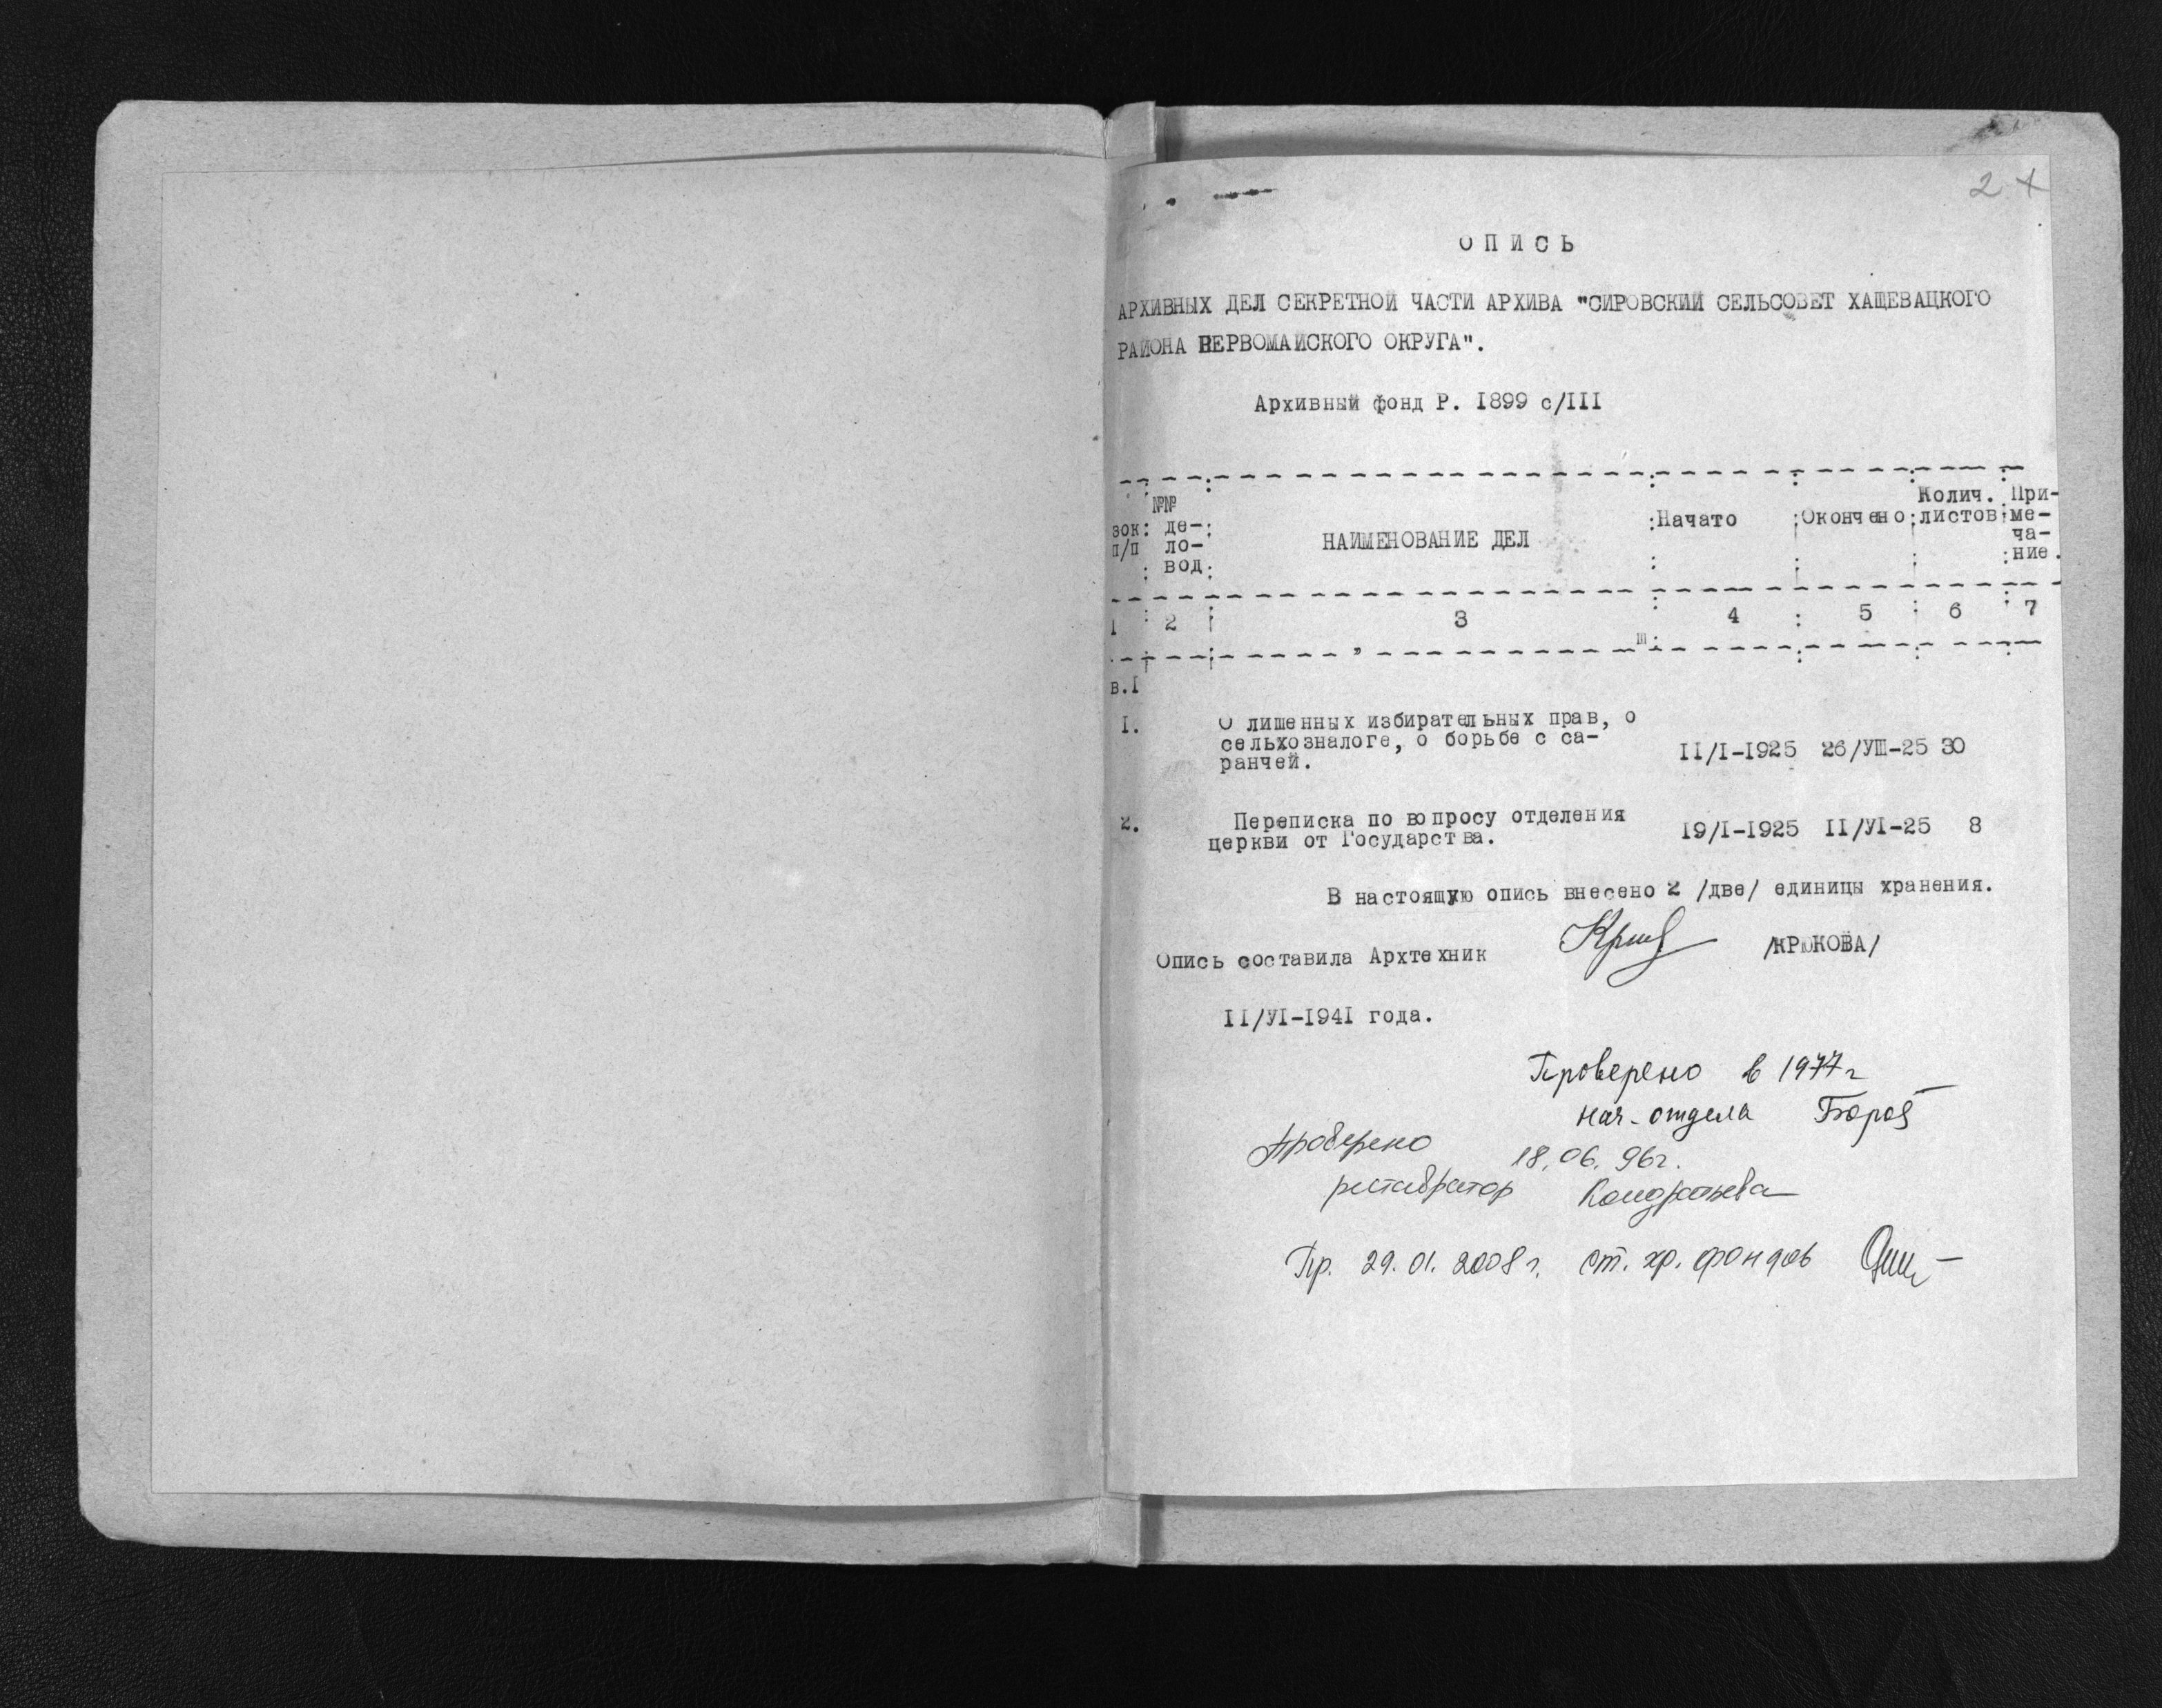 2
ОПИСЬ
АРХИВНЫХ ДЕЛ СЕКРЕТНОЙ ЧАСТИ АРХИВА "СИРОВСКИЙ СЕЛЬСОВЕТ ХАЩЕВАЦКОГО
РАЙОНА ПЕРВОМАЙСКОГО ОКРУГА".
Архивный фонд Р. I899 с/III
№№ Колич. При-
зок: де- НАИМЕНОВАНИЕ ДЕЛ :Начато :Окончено:листов:ме-
п/п ло- ча-
вод: :ние.
1 : 2 : 3 : 4 : 5 : 6 : 7
в.I
I. О лишенных избирательных прав, о
сельхозналоге, о борьбе с са- II/I-I925 26/УШ-25 30
ранчей.
2. Переписка по вопросу отделения I9/I-I925 II/УI-25 8
церкви от Государства.
В настоящую опись внесено 2 /две/ единицы хранения.
Опись составила Архтехник /КРЮКОВА/
II/УI-I94I года.
Проверено в 1977 г
нач. отдела
Проверено 18.06.96г.
реставратор Кондратьева
Пр. 29.01.2008 г. ст. хр. фондов